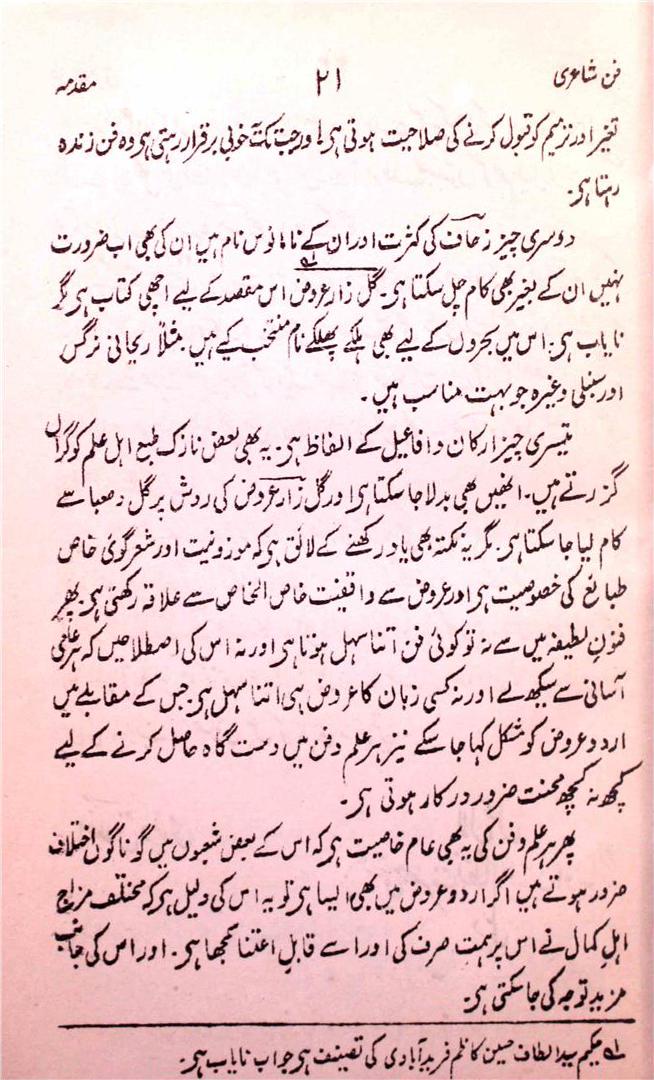 فن شاعری ۲۱ مقدمہ
تغیر اور ترمیم کو قبول کرنے کی صلاحیت ہوتی ہی اور جب تک یہ خوبی برقرار رہتی ہی وہ فن زندہ
رہتا ہی۔
دوسری چیز زحاف کی کثرت اور ان کے نامانوس نام ہیں ان کی بھی اب ضرورت
نہیں ان کے بغیر بھی کام چل سکتا ہی۔ گل زار عروض۱ اس مقصد کے لیے اچھی کتاب ہی مگر
نایاب ہی۔ اس میں بحروں کے لیے بھی ہلکے پھلکے نام منتخب کیے ہیں۔ مثلاً ریحانی نرگس
اور سنبلی وغیرہ جو بہت مناسب ہیں۔
تیسری چیز ارکان و افاعیل کے الفاظ ہی۔ یہ بھی بعض نازک طبع اہل علم کو گراں
گزرتے ہیں۔ انھیں بھی بدلا جا سکتا ہی اور گل زار عروض کی روش پر گل و صبا سے
کام لیا جا سکتا ہی۔ مگر یہ نکتہ بھی یاد رکھنے کے لائق ہی کہ موزونیت اور شعر گوئی خاص
طبائع کی خصوصیت ہی اور عروض سے واقفیت خاص الخاص سے علاقہ رکھتی ہی۔ پھر
فنونِ لطیفہ میں سے نہ تو کوئی فن اتنا سہل ہوتا ہی اور نہ اس کی اصطلاحیں کہ ہر عامی
آسانی سے سیکھ لے اور نہ کسی زبان کا عروض ہی اتنا سہل ہی۔ جس کے مقابلے میں
اردو عروض کو مشکل کہا جا سکے نیز ہر علم و فن میں دست گاہ حاصل کرنے کے لیے
کچھ نہ کچھ محنت ضرور درکار ہوتی ہی۔
پھر ہر علم و فن کی یہ بھی عام خاصیت ہی کہ اس کے بعض شعبوں میں گوناگوں اختلاف
ضرور ہوتے ہیں اگر اردو عروض میں بھی ایسا ہی تو یہ اس کی دلیل ہی کہ مختلف مزاج
اہلِ کمال نے اس پر ہمت صرف کی اور اسے قابلِ اعتنا سمجھا ہی۔ اور اس کی جانب
مزید توجہ کی جا سکتی ہی۔
۱ حکیم سید الطاف حسین کاظم فرید آبادی کی تصنیف ہی جو اب نایاب ہی۔